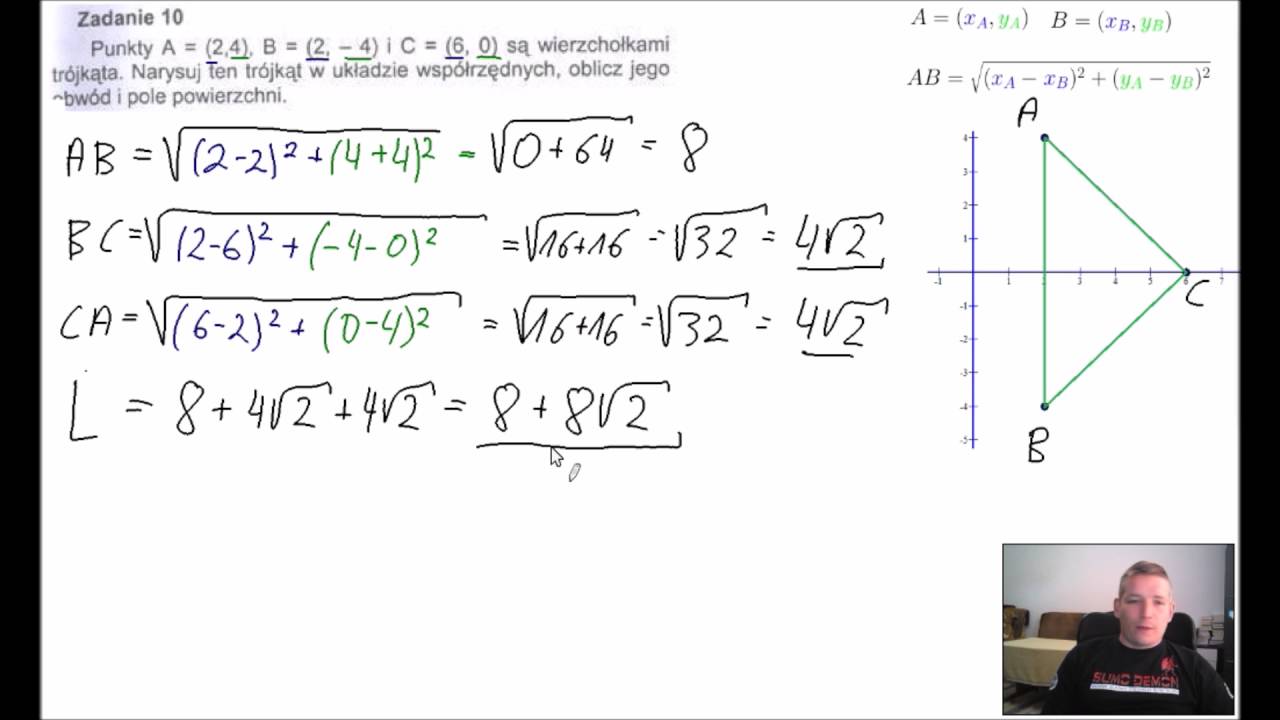 Zadanie 10
Punkty A = (2,4), B = (2, – 4) i C = (6, 0) są wierzchołkami
trójkąta. Narysuj ten trójkąt w układzie współrzędnych, oblicz jego
obwód i pole powierzchni.
A = (x_A, y_A) B = (x_B, y_B)
AB = √((x_A − x_B)² + (y_A − y_B)²)
AB = √((2-2)² + (4+4)²) = √(0+64) = 8
BC = √((2-6)² + (-4-0)²) = √(16+16) = √32 = 4√2
CA = √((6-2)² + (0-4)²) = √(16+16) = √32 = 4√2
L = 8 + 4√2 + 4√2 = 8 + 8√2
A
4
3
2
1
-1 1 2 3 4 5 6 7
C
-1
-2
-3
-4
-5
B
SUMO DEMON